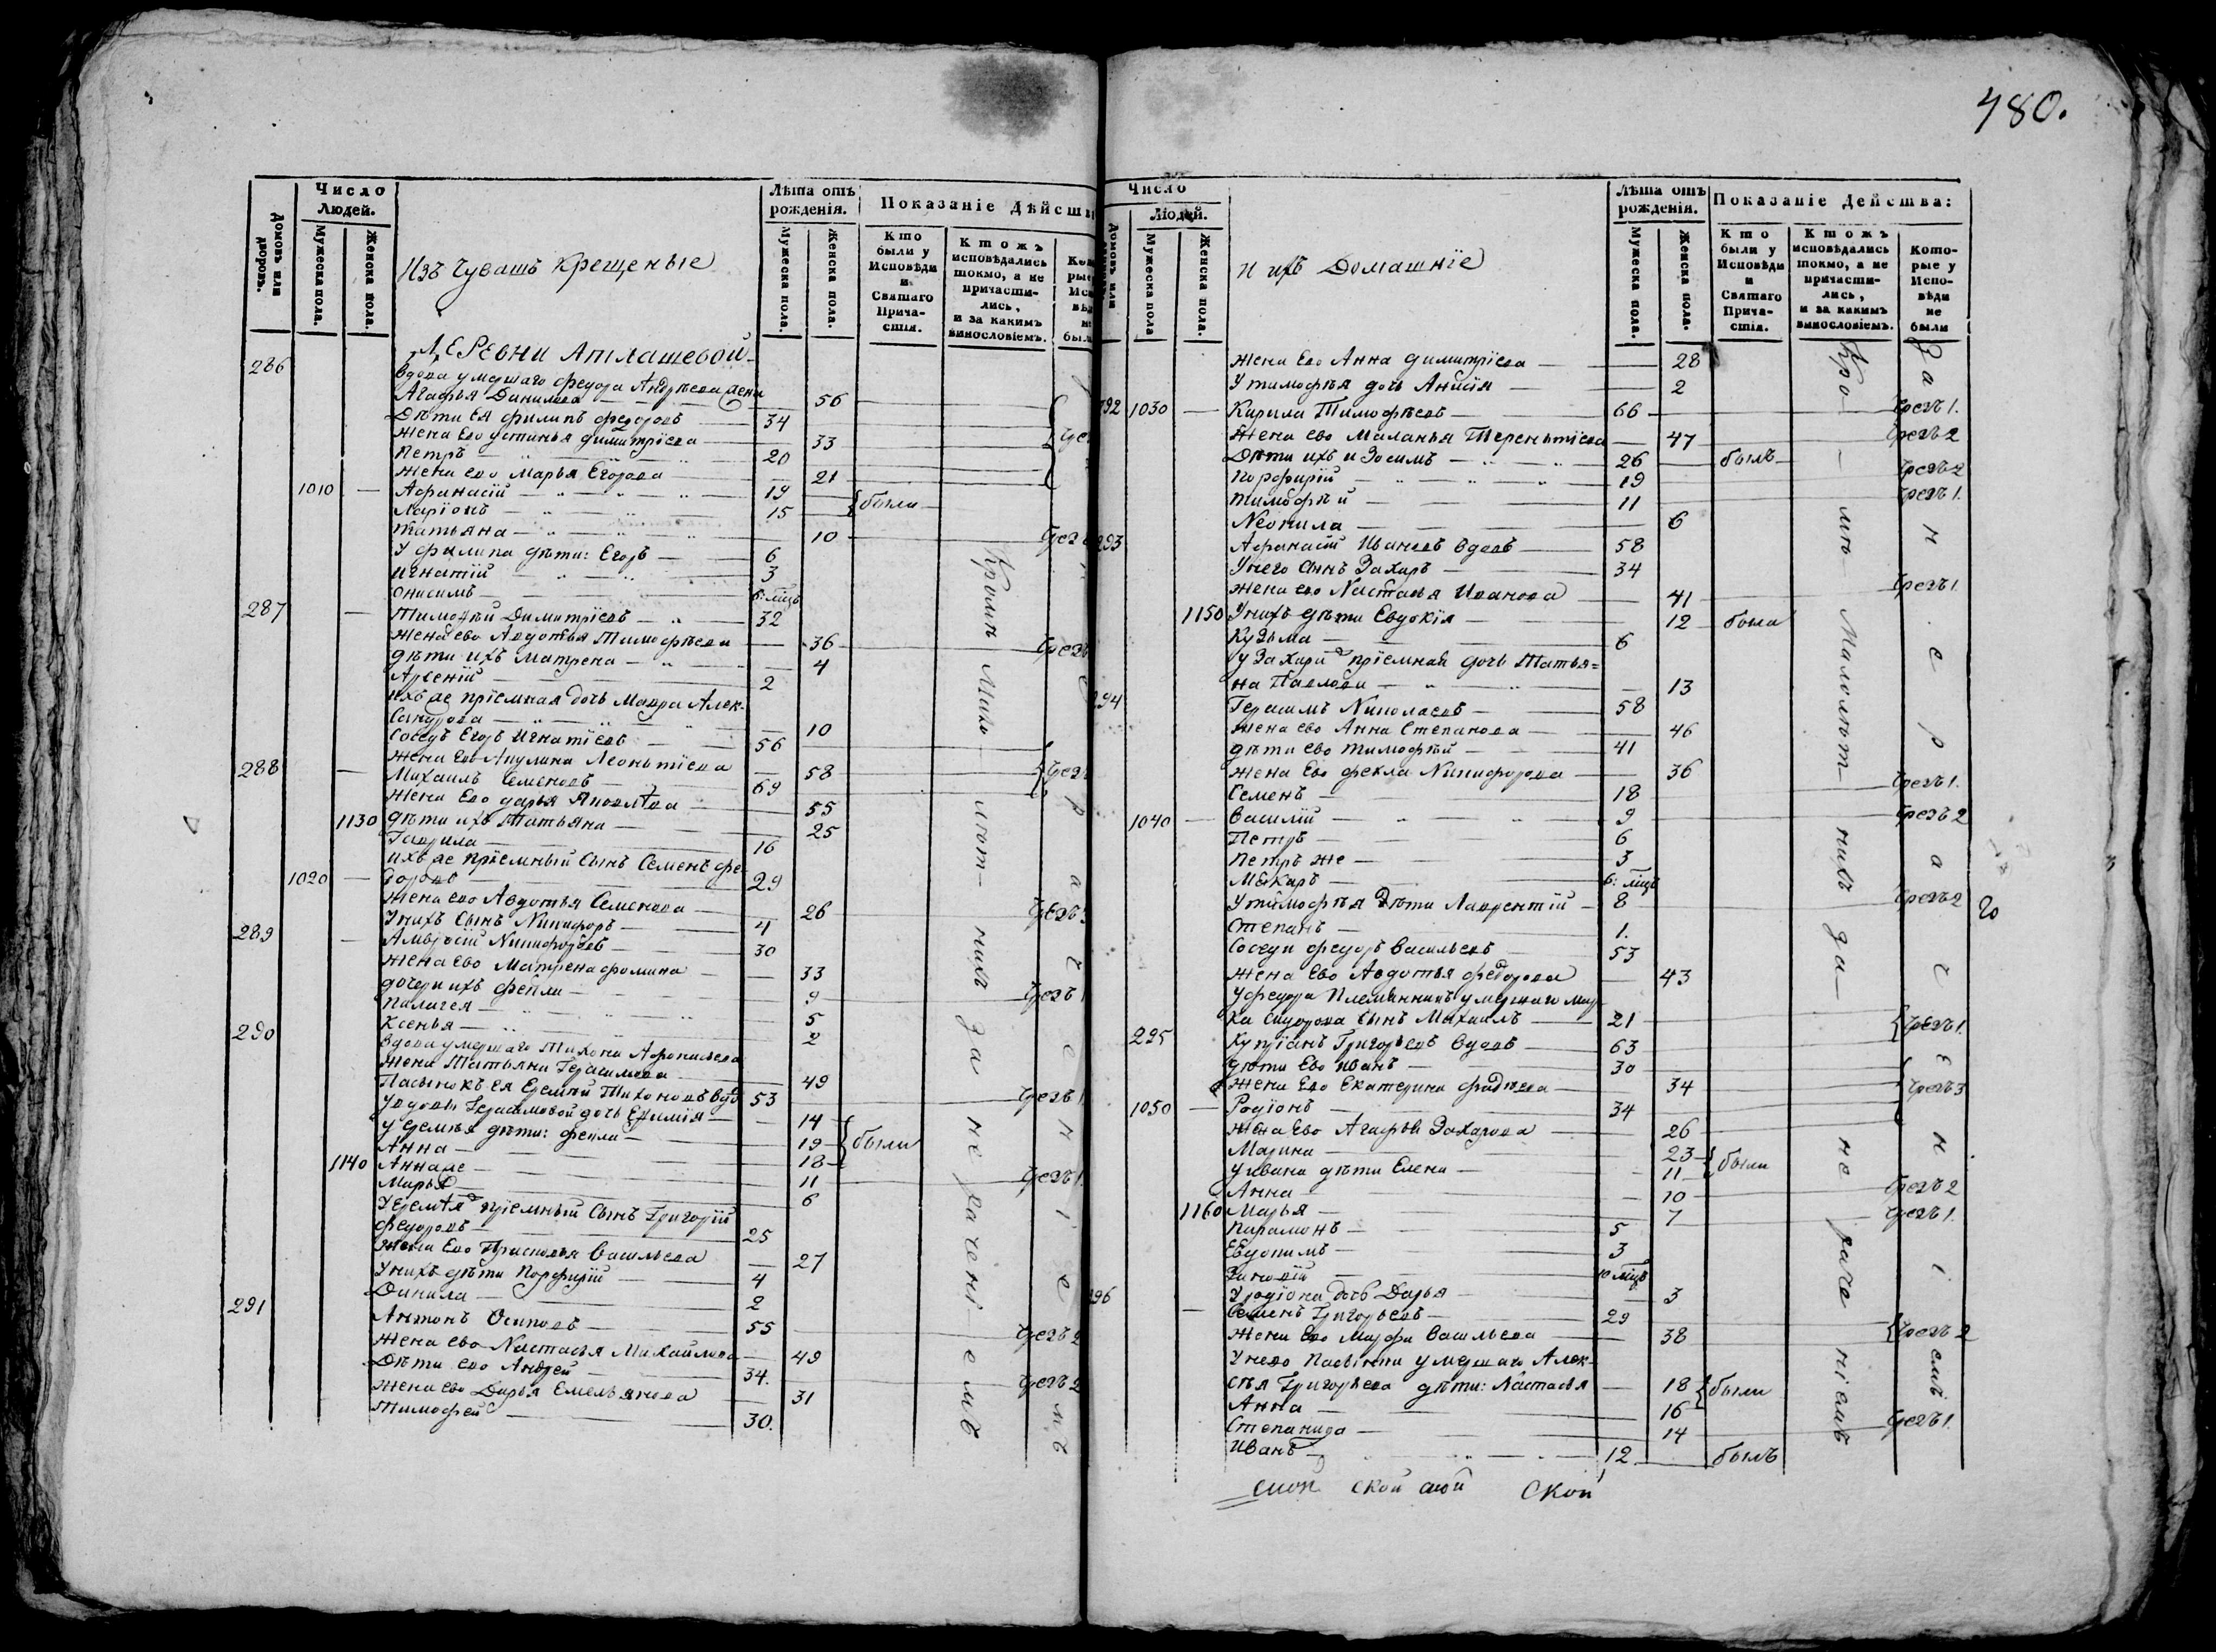 480.
Домовъ или дворовъ.
Число Людей.
Мужеска пола.
Женска пола.
Изъ Чувашъ Крещеные
Лѣта отъ рожденія.
Мужеска пола.
Женска пола.
Показаніе Дѣйст
Кто были у Исповѣди и Святаго Прича-стія.
Ктожъ исповѣдались токмо, а не причасти-лись, и за какимъ винословіемъ.
286 Деревни Атлашевой
Вдова умершаго Федора Андрѣева жена
Агафья Данилова 56
Дѣти Ея Филипъ Федоровъ 34
Жена Ево Устинья Димитріева 33
Петръ 20
Жена ево Марья Егорова 21
1010 Афанасій 19 были
Ларіонъ 15
Татьяна 10
У Филипа дѣти: Егоръ 6
Игнатій 3
Онисимъ 6: мцъ
287 Тимофѣй Димитріевъ 32
Жена ево Авдотья Тимофѣева 36
Дѣти ихъ Матрена 4
Арсеній 2
Ихъ же пріемная дочь Мавра Алек-
сандрова 10
Соседъ Егоръ Игнатіевъ 56
Жена Ево Акулина Леонтіева 58
288 Михаилъ Семеновъ 69
Жена Ево Дарья Яковлѣва 55
1130 Дѣти ихъ Татьяна 25
Гаврила 16
Ихъ же пріемный Сынъ Семенъ Фе-
1020 доровъ 29
Жена ево Авдотья Семенова 26
У нихъ Сынъ Никифоръ 4
289 Амвросій Никифоровъ 30
Жена Ево Матрена Фомина 33
Дочери ихъ Фекла 9
Палагея 5
Ксенья 2
290 Вдова умершаго Тихона Афонасьева
жена Татьяна Герасимова 49
Пасынокъ ея Еремѣй Тихоновъ вдо 53
У вдовы Герасимовой дочь Ефимія 14
У Еремѣя дѣти: Фекла 19 были
Анна 18
1140 Анна же 11
Марья 6
У Еремѣя пріемный Сынъ Григорій
Федоровъ 25
Жена Ево Прасковья Васильева 27
У нихъ дѣти Порфирій 4
Данила 2
291 Антонъ Осиповъ 55
Жена ево Настасья Михайлова 49
Дѣти ево Андрей 34.
Жена ево Дарья Емельянова 31
Тимофей 30.
Кромѣ Мало-лѣт-нихъ за не раченіемъ
Число Людей.
Мужеска пола
Женска пола.
и ихъ Домашніе
Лѣта отъ рожденія.
Мужеска пола.
Женска пола.
Показаніе Действа:
Кто были у Исповѣди и Святаго Прича-стія.
Ктожъ исповѣдались токмо, а не причасти-лись, и за какимъ винословіемъ.
Кото-рые у Испо-вѣди не были
Жена Ево Анна Димитріева 28
У Тимофѣя дочь Анисія 2
292 1030 Кирила Тимофѣевъ 66 Чрезъ 1.
Жена ево Маланья Терентіева 47 Чрезъ 2
Дѣти ихъ Изосимъ 26 былъ
Порфирій 19 Чрезъ 2
Тимофѣй 11 Чрезъ 1.
Неонила 6
293 Афанасій Ивановъ Вдовъ 58
У него Сынъ Захаръ 34
Жена ево Настасья Иванова 41 Чрезъ 1
1150 У нихъ Дѣти Евдокія 12 была
Кузьма 6
У Захара пріемная дочь Татья=
на Павлова 13
294 Герасимъ Николаевъ 58
Жена ево Анна Степанова 46
Дѣти ево Тимофѣй 41
Жена Ево Фекла Никифорова 36
Семенъ 18 Чрезъ 1.
1040 Василій 9 Чрезъ 2
Петръ 6
Петръ же 3
Макаръ 6: мцъ
У Тимофѣя Дѣти Лаврентій 8 Чрезъ 2
Степанъ 1.
Соседи Федоръ Васильевъ 53
Жена Ево Авдотья Федорова 43
У Федора Племянникъ умершаго Мар-
ка Сидорова Сынъ Михаилъ 21 Чрезъ 1.
295 Купріанъ Григорьевъ Вдовъ 63
Дѣти Ево Иванъ 30
Жена Ево Екатерина Фадѣева 34 Чрезъ 3
1050 Родіонъ 34
Жена Ево Агафья Захарова 26
Марина 23 были
У Ивана дѣти Елена 11
Анна 10 Чрезъ 2
1160 Марья 7 Чрезъ 1.
Парамонъ 5
Евдокимъ 3
Зиновій 10 мцъ
У Родіона дочь Дарья 3
296 Семенъ Григорьевъ 29
Жена Ево Марфа Васильева 38 Чрезъ 2
У нево Пасынки умершаго Алек-
сѣя Григорьева дѣти: Настасья 18 были
Анна 16
Степанида 14 Чрезъ 1.
Иванъ 12 былъ
Кро-мѣ Малолѣт-нихъ за не раченіемъ
За нераченіемъ
ской ской